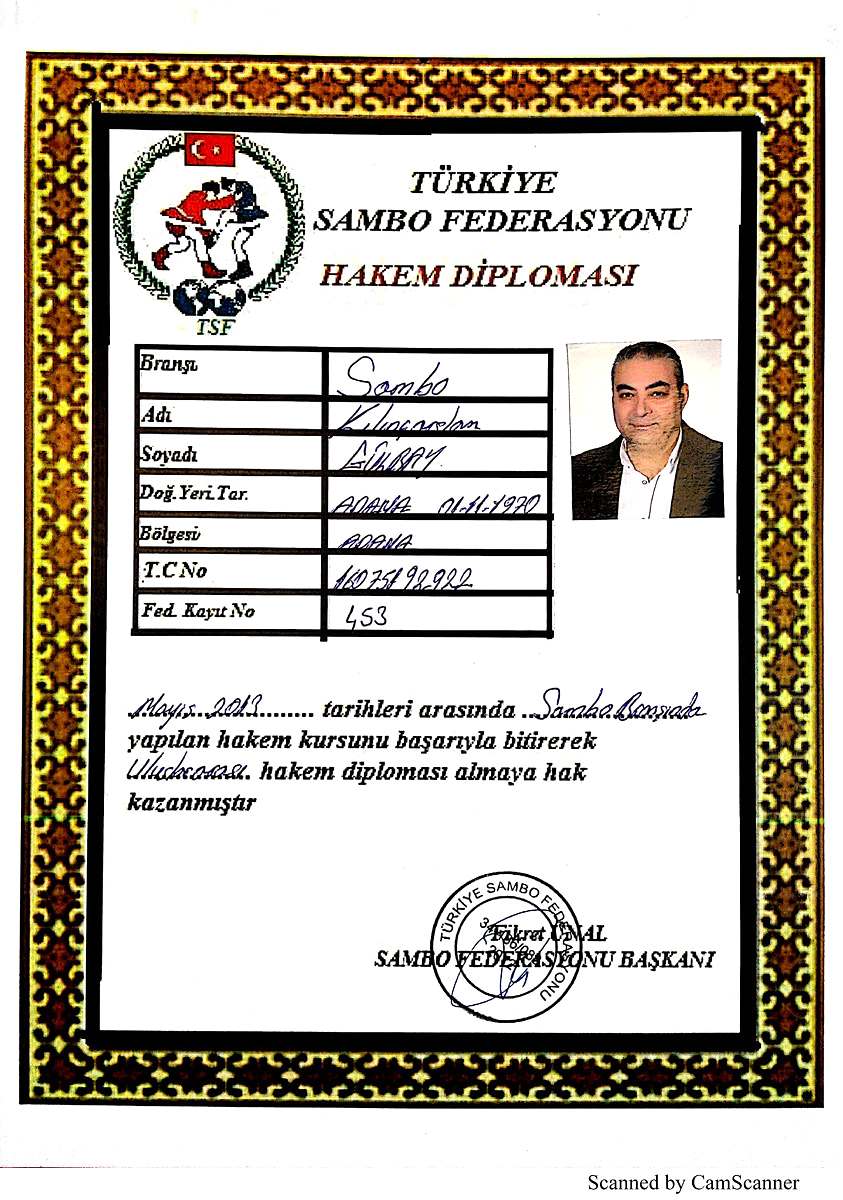 TÜRKİYE
SAMBO FEDERASYONU
HAKEM DİPLOMASI
TSF
Branşı Sambo
Adı Kılıçarslan
Soyadı GÜLBAY
Doğ.Yeri.Tar. ADANA 01-11-1970
Bölgesi ADANA
T.C No
Fed. Kayıt No 453
Mayıs 2013 tarihleri arasında Sambo Branşında
yapılan hakem kursunu başarıyla bitirerek
Uluslararası hakem diploması almaya hak
kazanmıştır
TÜRKİYE SAMBO FEDERASYONU
Fikret ÜNAL
SAMBO FEDERASYONU BAŞKANI
Scanned by CamScanner